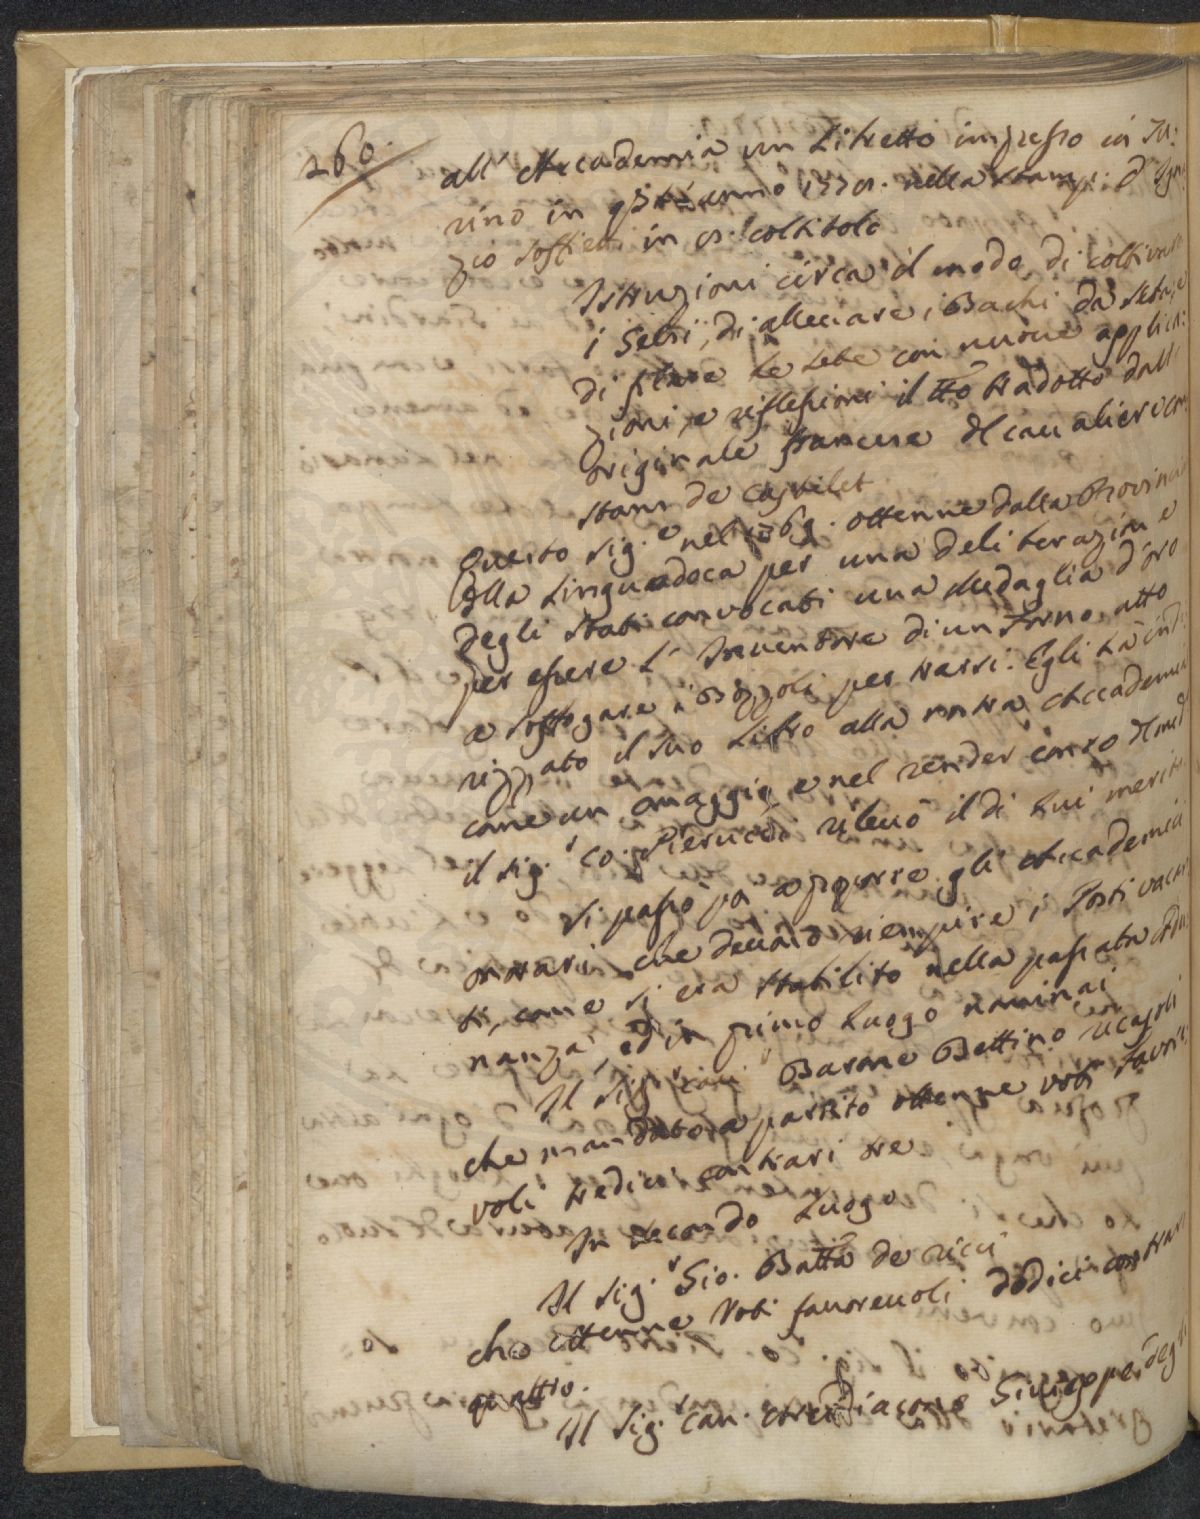 260.
all' Accademia un Libretto impresso in Tu:
rino in anno 1770. nella Stamp: d' Igna
zio Soffietti in 8.° col titolo
Istruzioni circa il modo di coltivare
i Gelsi, di allevare i Bachi da Seta, e
di filare le Sete con nuove applica:
zioni, e riflessioni il tto tradotto dall'
originale francese del cavaliere
de
Questo Sig.e nel 1769. ottenne dalla Provincia
della Linguadoca per una deliberazione
degli Stati convocati una Medaglia d'oro
per essere l' Inventore di un Forno atto
a soffogare i Bozzoli per trarsi. Egli ha ind:
rizzato il suo Libro alla nostra Accademia
come un omaggio, e nel render conto del med
il Sig.r Co. Pierucci rilevò il di lui merito
Si passò poi a proporre gli Accademici
onorari che devono riempire i Posti vacan
ti, come si era stabilito nella passata Adu
nanza, ed in primo luogo nominai
Il Sig.r Barone Bettino Ricasoli
che mandato a partito ottenne voti favore
voli tredici contrari tre
In secondo luogo
Il Sig.r Gio. Batta de Ricci
che ottenne Voti favorevoli dodici contrari
quattro.
Il Sig.r Can. Arcidiacono Giuseppe degli